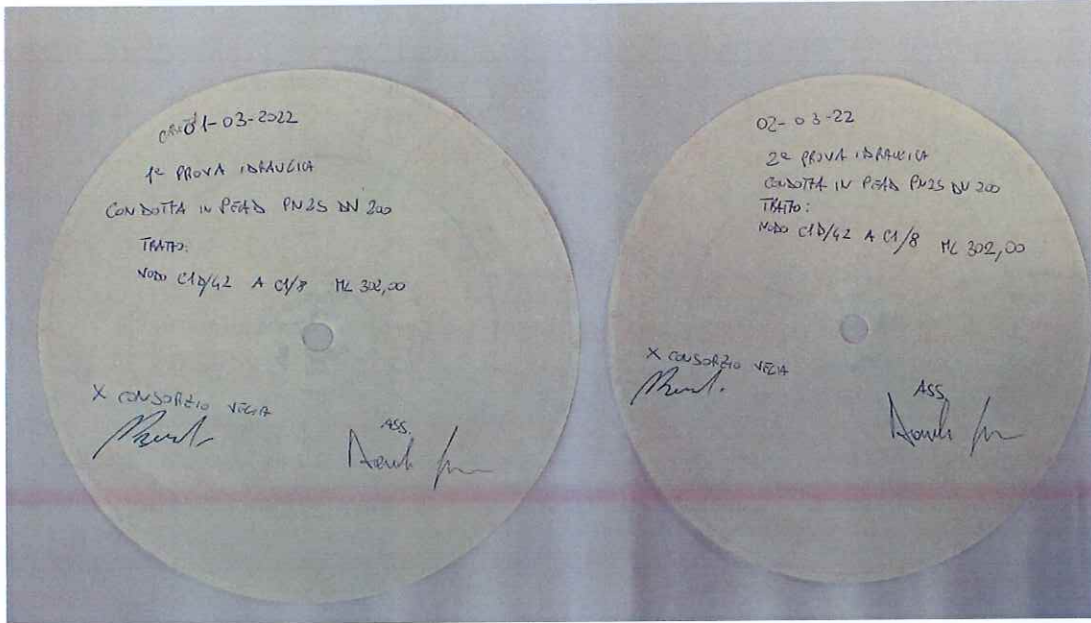 01-03-2022
1ª PROVA IDRAULICA
CONDOTTA IN PEAD PN25 DN 200
TRATTO:
NODO C1D/42 A C1/8 ML 302,00
X CONSORZIO
ASS.
02-03-22
2ª PROVA IDRAULICA
CONDOTTA IN PEAD PN25 DN 200
TRATTO:
NODO C1D/42 A C1/8 ML 302,00
X CONSORZIO
ASS.